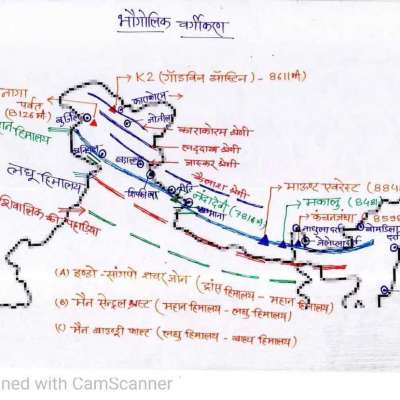 भौगोलिक वर्गीकरण
K2 (गॉडविन ऑस्टिन) - 8611मी
नंगा
पर्वत
(8126मी)
काराकोरम
जोजीला
बुर्जिल
काराकोरम श्रेणी
लद्दाख श्रेणी
जास्कर श्रेणी
कैलाश श्रेणी
हिमालय
लघु हिमालय
शिवालिक की पहाड़ियां
शिपकीला
माना
नन्दादेवी (7816मी)
माउण्ट एवरेस्ट (884
मकालू (848
कंचनजंघा (8598
नाथूला दर्रा
जेलेप्ला दर्रा
बोमडिला
(A) इण्डो-सांगपो शचर जोन (ट्रांस हिमालय - महान हिमालय)
(B) मेन सेन्ट्रल थ्रस्ट (महान हिमालय - लघु हिमालय)
(C) मेन बाउण्ड्री फाल्ट (लघु हिमालय - बाह्य हिमालय)
ned with CamScanner